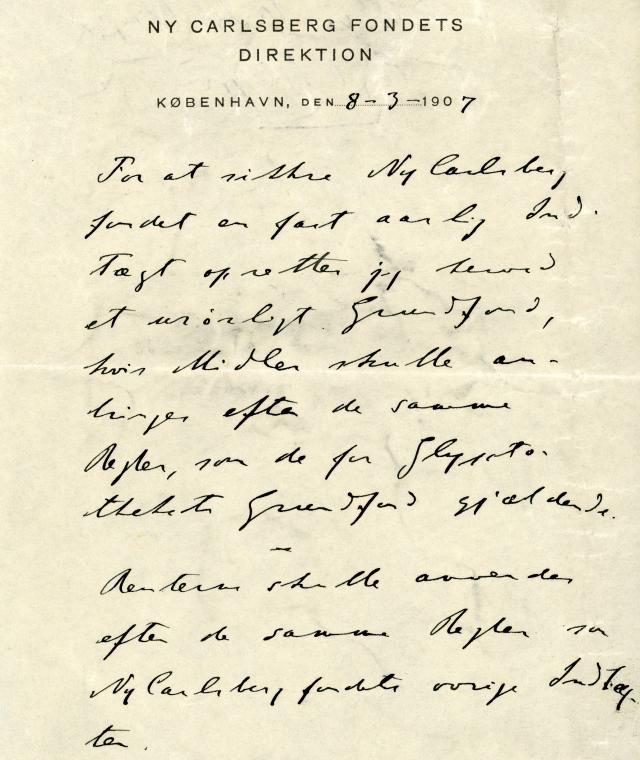 NY CARLSBERG FONDETS
DIREKTION
KØBENHAVN, DEN 8-3-1907
For at sikkre Ny Carlsberg
fondet en fast aarlig Ind-
tægt opretter jeg herved
et urørligt Grundfond,
hvis Midler skulle an-
bringes efter de samme
Regler, som de for Glypto-
thekets Grundfond gjældende.
—
Renterne skulle anvendes
efter de samme Regler som
Ny Carlsberg fondets øvrige Indtæg-
ter.